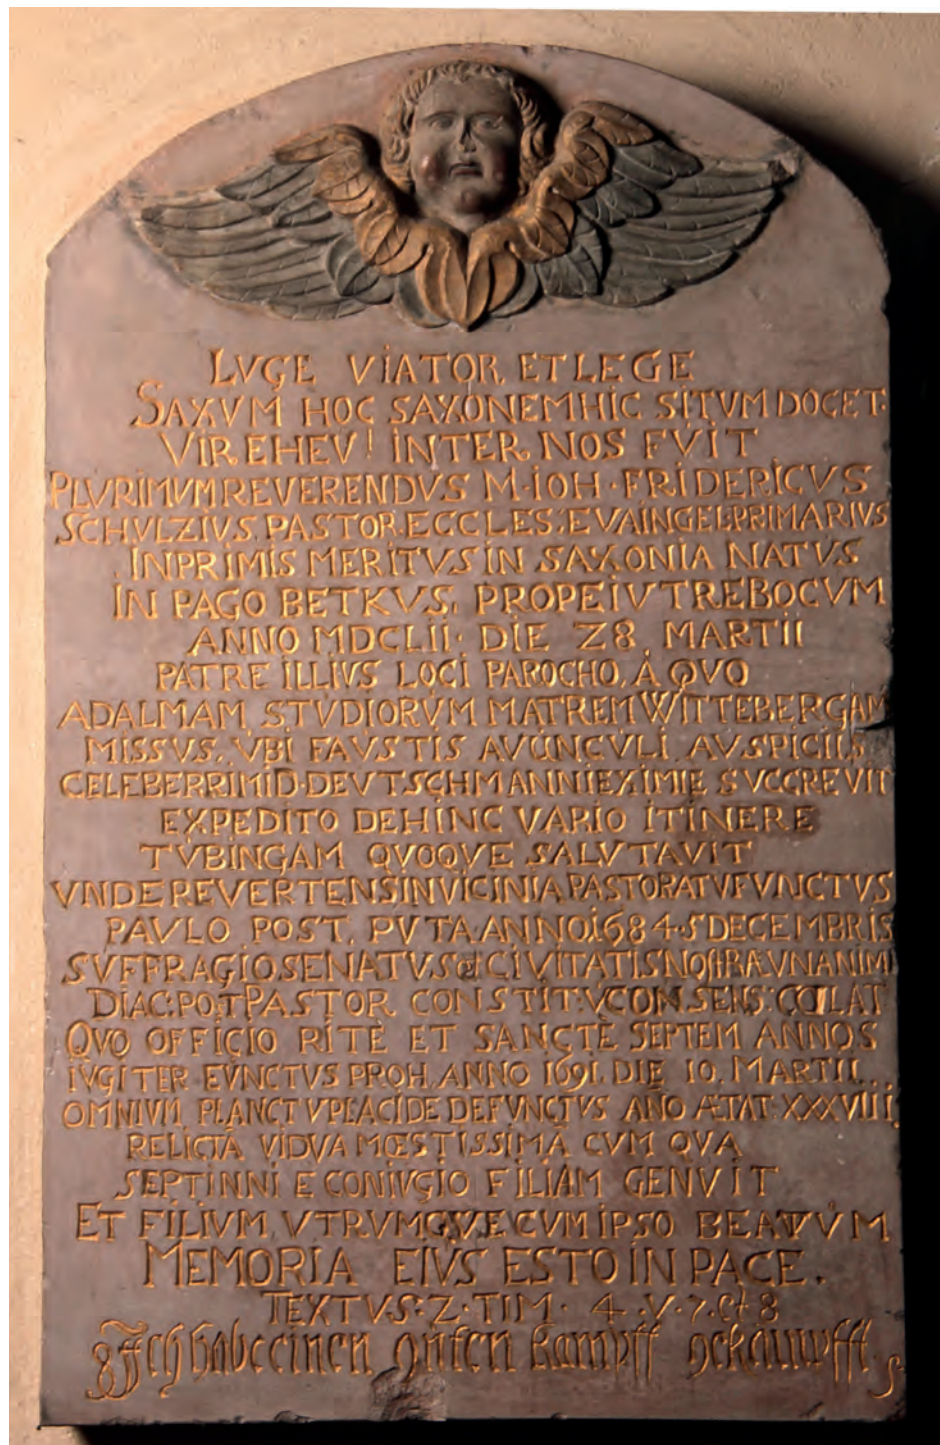 LVGE VIATOR, ET LEGE
SAXVM HOC SAXONEM HIC SITVM DOCET.
VIR EHEV! INTER NOS FVIT
PLVRIMVM REVERENDVS M. IOH. FRIDERICVS
SCHVLZIVS. PASTOR. ECCLES: EVAINGEL. PRIMARIVS
INPRIMIS MERITVS IN SAXONIA NATVS
IN PAGO BETKVS, PROPE IVTREBOCVM
ANNO MDCLII. DIE Z8. MARTII
PATRE ILLIVS LOCI PAROCHO, A QVO
AD ALMAM STVDIORVM MATREM WITTEBERGAM
MISSVS, VBI FAVSTIS AVUNCVLI AVSPICIIS
CELEBERRIMI D. DEVTSCHMANNI EXIMIE SVCCREVIT
EXPEDITO DEHINC VARIO ITINERE
TVBINGAM QVOQVE SALVTAVIT
VNDE REVERTENS IN VICINIA PASTORATV FVNCTVS
PAVLO POST, PVTA ANNO 1684. 5 DECEMBRIS
SVFFRAGIO SENATVS et CIVITATIS NOSTRÆ VNANIMI
DIAC: POT PASTOR CONSTIT: V CONSENS: COLLAT
QVO OFFICIO RITE ET SANCTE SEPTEM ANNOS
IVGITER FVNCTVS PROH, ANNO 1691. DIE 10. MARTII
OMNIVM PLANCTV PLACIDE DEFVNCTVS ANO ÆTAT: XXXVIIII,
RELICTA VIDVA MŒSTISSIMA CVM QVA
SEPTINNI E CONIVGIO FILIAM GENVIT
ET FILIVM, VTRVMQVE CVM IPSO BEATVM
MEMORIA EIVS ESTO IN PACE.
TEXTVS: Z. TIM. 4. V. 7. et 8
Ich habe einen guten Kampff gekampfft.